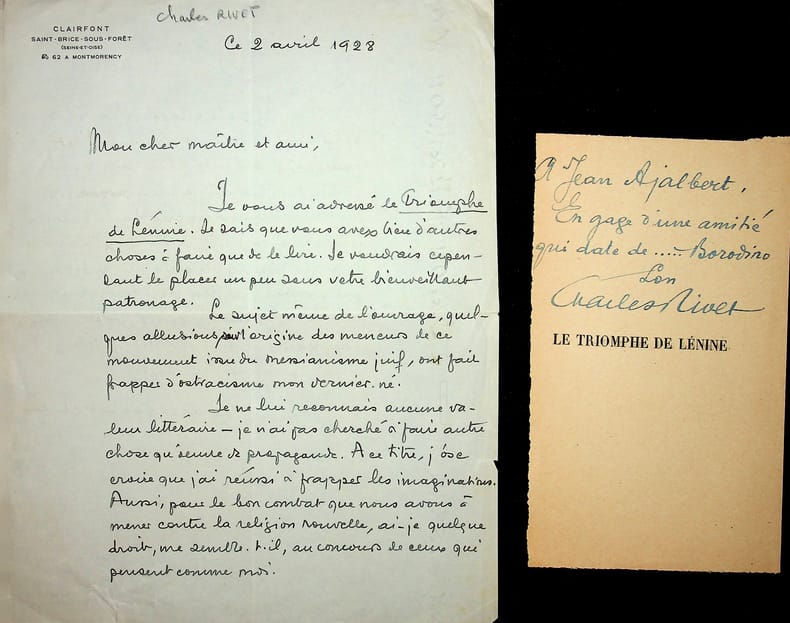 Charles RIVET
CLAIRFONT
SAINT-BRICE-SOUS-FORÊT
(SEINE-ET-OISE)
62 A MONTMORENCY
Ce 2 avril 1928
Mon cher maître et ami,
Je vous ai adressé le Triomphe
de Lénine. Je sais que vous avez lieu d'autres
choses à faire que de le lire. Je voudrais cepen-
dant le placer un peu sous votre bienveillant
patronage.
Le sujet même de l'ouvrage, quel-
ques allusions sur l'origine des meneurs de ce
mouvement issu du messianisme juif, ont fait
frapper d'ostracisme mon dernier-né.
Je ne lui reconnais aucune va-
leur littéraire – je n'ai pas cherché à faire autre
chose qu'œuvre de propagande. A ce titre, j'ose
croire que j'ai réussi à frapper les imaginations.
Aussi, pour le bon combat que nous avons à
mener contre la religion nouvelle, ai-je quelque
droit, me semble-t-il, au concours de ceux qui
pensent comme moi.
A Jean Ajalbert,
En gage d'une amitié
qui date de ..... Borodino
Son
Charles Rivet
LE TRIOMPHE DE LÉNINE